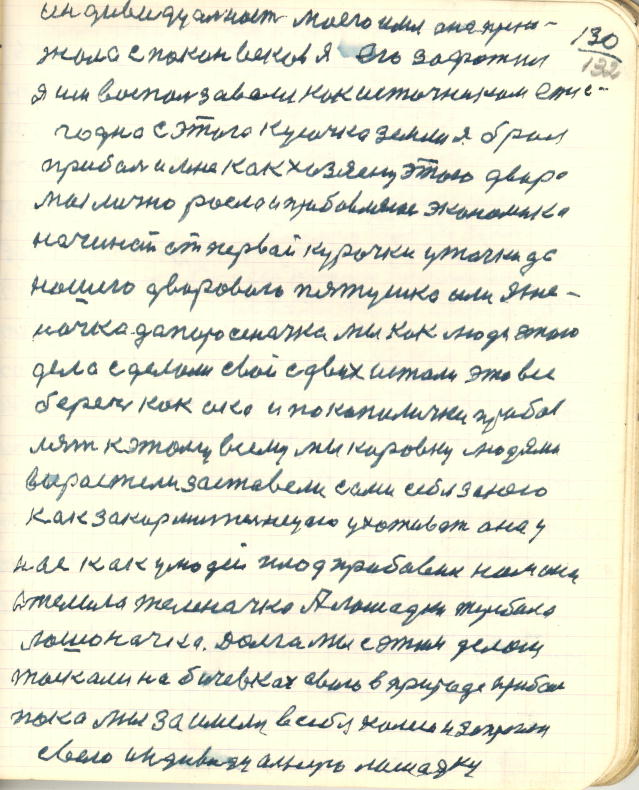 индивидуалност моего имя она прин-
130
132
жала споконвеков я его зафотил
я им воспользавали как источником ежи-
годна с этога кусочка земли я брал
прибал и мне как хозяену этого двара
мы лично росла и прибовляное экономика
начинай от первай курочки уточки да
нашего дворового пятушка или ягне-
ночка да поросеначка мы как люди этого
дела сделоли свой с двух истали это все
беречи как ока и по копиички прибов
лят к этому всему мы коровку людями
вырастели заставели сами себя за него
как за кармителницаю ухаживат она у
нас как у людей плод прибавил нам она
отелила теленачка А лошадки жирбала
лошоначка. Долга мы с этим делам
толкали на бичевках авало в природе прибал
пока мы заимели в себя холи и запрогли
свою индивидуальную лашадку